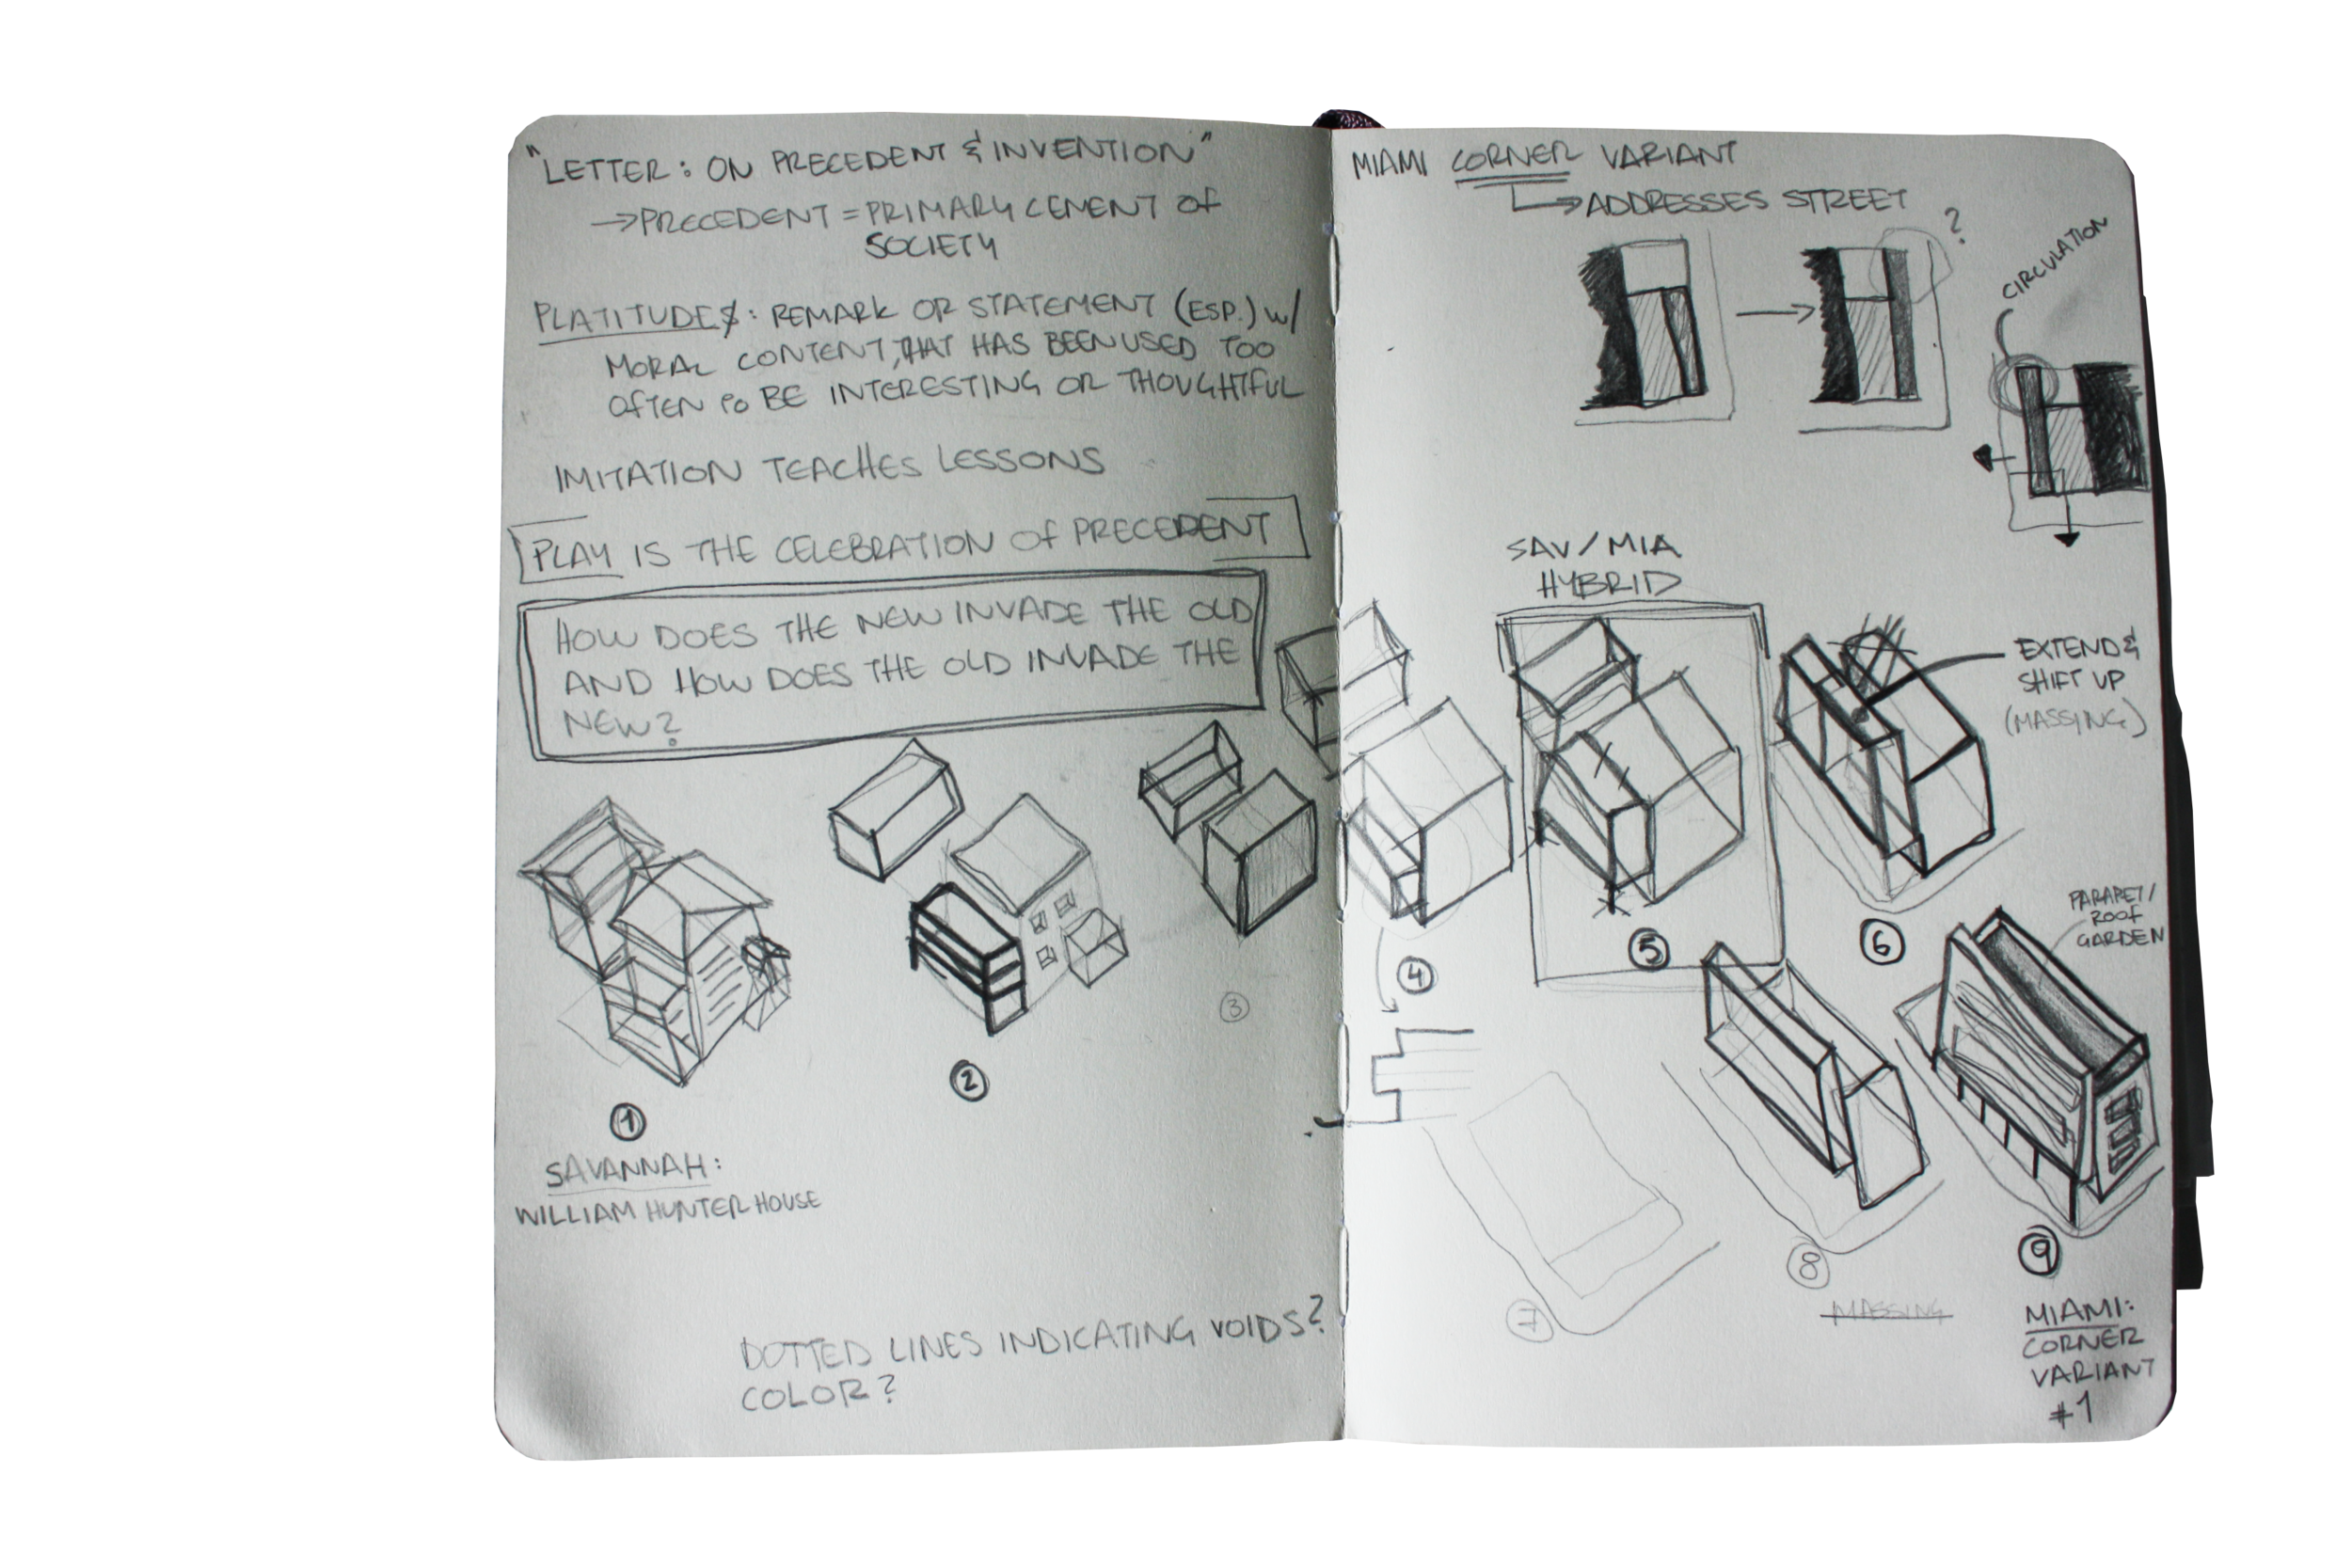 "LETTER: ON PRECEDENT & INVENTION"
→PRECEDENT = PRIMARY CEMENT OF
SOCIETY
PLATITUDES: REMARK OR STATEMENT (ESP.) W/
MORAL CONTENT, THAT HAS BEEN USED TOO
OFTEN TO BE INTERESTING OR THOUGHTFUL
IMITATION TEACHES LESSONS
PLAY IS THE CELEBRATION OF PRECEDENT
HOW DOES THE NEW INVADE THE OLD
AND HOW DOES THE OLD INVADE THE
NEW?
1
2
3
SAVANNAH:
WILLIAM HUNTER HOUSE
DOTTED LINES INDICATING VOIDS?
COLOR?
MIAMI CORNER VARIANT
→ADDRESSES STREET
?
CIRCULATION
SAV/MIA
HYBRID
EXTEND &
SHIFT UP
(MASSING)
4
5
6
PARAPET/
ROOF
GARDEN
7
8
9
MASSING
MIAMI:
CORNER
VARIANT
#1